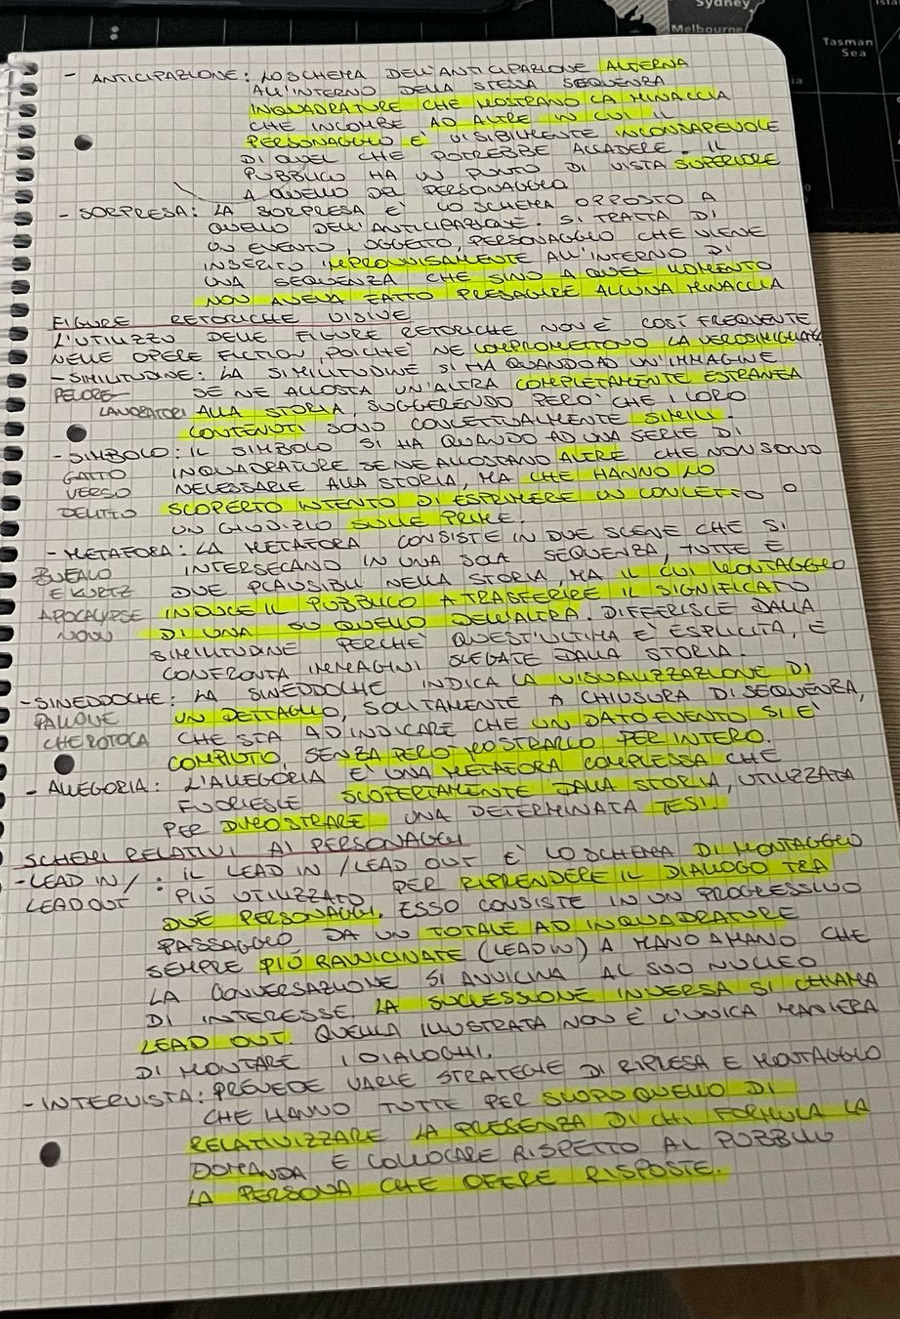 Sydney
Melbourne
Tasman
Sea
- ANTICIPAZIONE: LO SCHEMA DELL'ANTICIPAZIONE ALTERNA
ALL'INTERNO DELLA STESSA SEQUENZA
INQUADRATURE CHE MOSTRANO LA MINACCIA
CHE INCOMBE AD ALTRE IN CUI IL
PERSONAGGIO È VISIBILMENTE INCONSAPEVOLE
DI QUEL CHE POTREBBE ACCADERE. IL
PUBBLICO HA UN PUNTO DI VISTA SUPERIORE
A QUELLO DEL PERSONAGGIO
- SORPRESA: LA SORPRESA E' LO SCHEMA OPPOSTO A
QUELLO DELL'ANTICIPAZIONE. SI TRATTA DI
UN EVENTO, OGGETTO, PERSONAGGIO CHE VIENE
INSERITO IMPROVVISAMENTE ALL'INTERNO DI
UNA SEQUENZA CHE SINO A QUEL MOMENTO
NON AVEVA FATTO PRESAGIRE ALCUNA MINACCIA
FIGURE RETORICHE VISIVE
L'UTILIZZO DELLE FIGURE RETORICHE NON È COSÍ FREQUENTE
NELLE OPERE FICTION, POICHE' NE COMPROMETTONO LA VEROSIMIGLIANZA
- SIMILITUDINE: LA SIMILITUDINE SI HA QUANDO AD UN'IMMAGINE
PECORE- SE NE ACCOSTA UN'ALTRA COMPLETAMENTE ESTRANEA
LAVORATORI ALLA STORIA, SUGGERENDO PERO' CHE I LORO
CONTENUTI SONO CONCETTUALMENTE SIMILI.
- SIMBOLO: IL SIMBOLO SI HA QUANDO AD UNA SERIE DI
GATTO INQUADRATURE SE NE ACCOSTANO ALTRE CHE NON SONO
VERSO NECESSARIE ALLA STORIA, MA CHE HANNO LO
DELITTO SCOPERTO INTENTO DI ESPRIMERE UN CONCETTO O
UN GIUDIZIO SULLE PRIME.
- METAFORA: LA METAFORA CONSISTE IN DUE SCENE CHE SI
BUFALO INTERSECANO IN UNA SOLA SEQUENZA, TUTTE E
E KURTZ DUE PLAUSIBILI NELLA STORIA, MA IL CUI MONTAGGIO
APOCALYPSE INDUCE IL PUBBLICO A TRASFERIRE IL SIGNIFICATO
NOW DI UNA SU QUELLO DELL'ALTRA. DIFFERISCE DALLA
SIMILITUDINE PERCHE' QUEST'ULTIMA E' ESPLICITA, E
CONFRONTA IMMAGINI SLEGATE DALLA STORIA.
- SINEDDOCHE: LA SINEDDOCHE INDICA LA VISUALIZZAZIONE DI
PALLONE UN DETTAGLIO, SOLITAMENTE A CHIUSURA DI SEQUENZA,
CHE ROTOLA CHE STA AD INDICARE CHE UN DATO EVENTO SI E'
COMPIUTO, SENZA PERO' MOSTRARLO PER INTERO.
- ALLEGORIA: L'ALLEGORIA E' UNA METAFORA COMPLESSA CHE
FUORIESCE SCOPERTAMENTE DALLA STORIA, UTILIZZATA
PER DIMOSTRARE UNA DETERMINATA TESI
SCHEMI RELATIVI AI PERSONAGGI
- LEAD IN/ : IL LEAD IN / LEAD OUT E' LO SCHEMA DI MONTAGGIO
LEAD OUT PIÙ UTILIZZATO PER RIPRENDERE IL DIALOGO TRA
DUE PERSONAGGI. ESSO CONSISTE IN UN PROGRESSIVO
PASSAGGIO DA UN TOTALE AD INQUADRATURE
SEMPRE PIÙ RAVVICINATE (LEAD IN) A MANO A MANO CHE
LA CONVERSAZIONE SI AVVICINA AL SUO NUCLEO
DI INTERESSE. LA SUCCESSIONE INVERSA SI CHIAMA
LEAD OUT. QUELLA ILLUSTRATA NON È L'UNICA MANIERA
DI MONTARE I DIALOGHI.
- INTERVISTA: PREVEDE VARIE STRATEGIE DI RIPRESA E MONTAGGIO
CHE HANNO TUTTE PER SCOPO QUELLO DI
RELATIVIZZARE LA PRESENZA DI CHI FORMULA LA
DOMANDA E COLLOCARE RISPETTO AL PUBBLICO
LA PERSONA CHE OFFRE RISPOSTE.